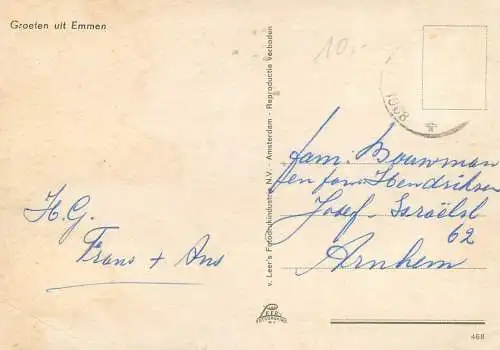 Groeten uit Emmen
10,-
1968
H.G.
Frans + Ans
v. Leer's Fotodrukindustrie N.V. - Amsterdam - Reproductie verboden
fam. Bouwman
en fam. Hendriksen
Josef-Israëlsl
62
Arnhem
468